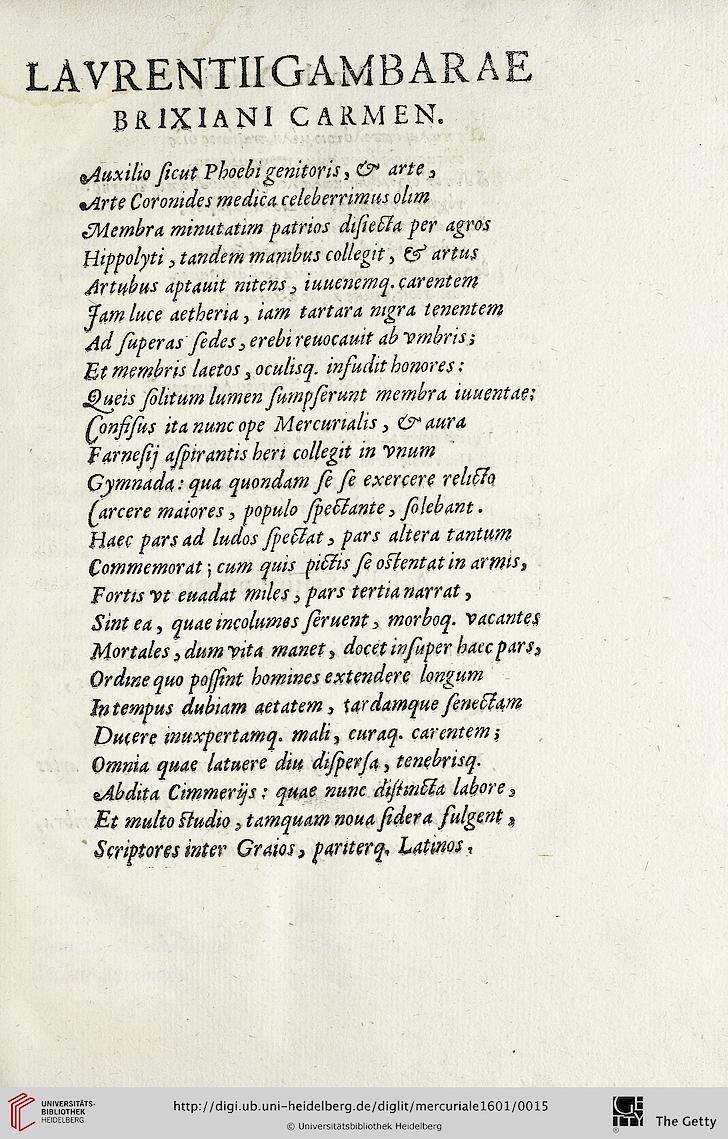 LAVRENTII GAMBARAE
BRIXIANI CARMEN.
Auxilio ſicut Phoebi genitoris, & arte,
Arte Coronides medica celeberrimus olim
Membra minutatim patrios diſiecta per agros
Hippolyti, tandem manibus collegit, & artus
Artubus aptauit nitens, iuuenemq. carentem
Jam luce aetheria, iam tartara nigra tenentem
Ad ſuperas ſedes, erebi reuocauit ab vmbris;
Et membris laetos, oculisq. infudit honores:
Queis ſolitum lumen ſumpſerunt membra iuuentae:
Confiſus ita nunc ope Mercurialis, & aura
Farneſij aſpirantis heri collegit in vnum
Gymnada: qua quondam ſe ſe exercere relicto
Carcere maiores, populo ſpectante, ſolebant.
Haec pars ad ludos ſpectat, pars altera tantum
Commemorat; cum quis pictis ſe oſtentat in armis,
Fortis vt euadat miles, pars tertia narrat,
Sint ea, quae incolumes ſeruent, morboq. vacantes
Mortales, dum vita manet, docet inſuper haec pars,
Ordine quo poſſint homines extendere longum
In tempus dubiam aetatem, tardamque ſenectam
Ducere inuxpertamq. mali, curaq. carentem;
Omnia quae latuere diu diſperſa, tenebrisq.
Abdita Cimmerijs: quae nunc diſtincta labore,
Et multo ſtudio, tamquam noua ſidera fulgent,
Scriptores inter Graios, pariterq. Latinos.
UNIVERSITÄTS-
BIBLIOTHEK
HEIDELBERG
http://digi.ub.uni-heidelberg.de/diglit/mercuriale1601/0015
© Universitätsbibliothek Heidelberg
The Getty